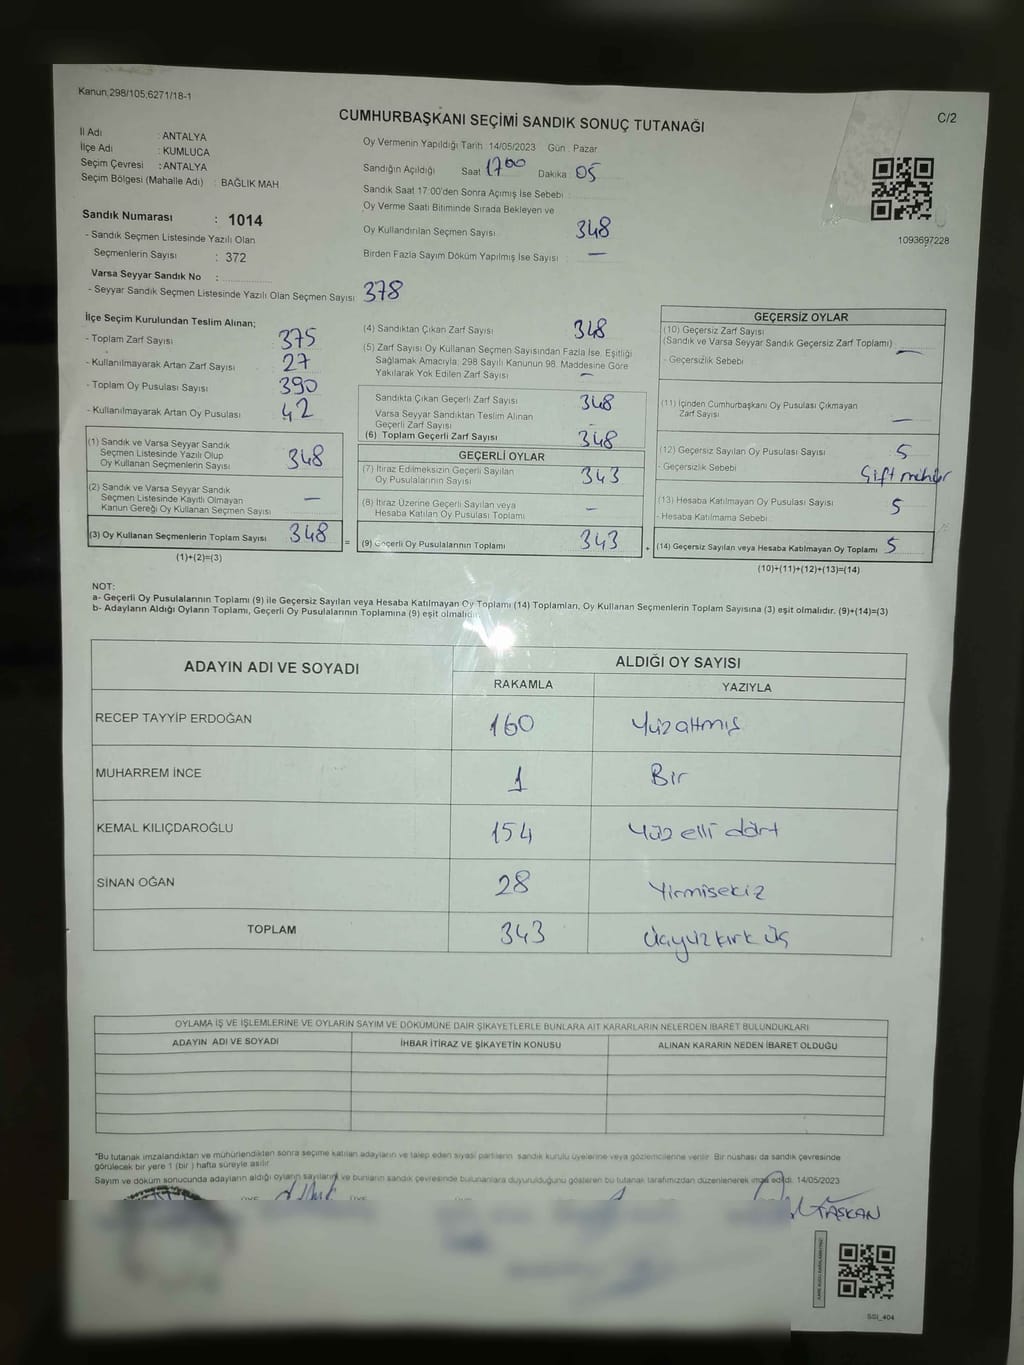 Kanun,298/105,6271/18-1
C/2
CUMHURBAŞKANI SEÇİMİ SANDIK SONUÇ TUTANAĞI
İl Adı : ANTALYA
İlçe Adı : KUMLUCA
Seçim Çevresi : ANTALYA
Seçim Bölgesi (Mahalle Adı) : BAĞLIK MAH
Sandık Numarası : 1014
- Sandık Seçmen Listesinde Yazılı Olan
Seçmenlerin Sayısı : 372
Varsa Seyyar Sandık No :
- Seyyar Sandık Seçmen Listesinde Yazılı Olan Seçmen Sayısı 378
Oy Vermenin Yapıldığı Tarih :14/05/2023 Gün : Pazar
Sandığın Açıldığı Saat 17 00 Dakika : 05
Sandık Saat 17:00'den Sonra Açımış İse Sebebi :
Oy Verme Saati Bitiminde Sırada Bekleyen ve
Oy Kullandırılan Seçmen Sayısı : 348
Birden Fazla Sayım Döküm Yapılmış İse Sayısı : —
1093697228
İlçe Seçim Kurulundan Teslim Alınan;
- Toplam Zarf Sayısı 375
- Kullanılmayarak Artan Zarf Sayısı 27
- Toplam Oy Pusulası Sayısı 390
- Kullanılmayarak Artan Oy Pusulası 42
(1) Sandık ve Varsa Seyyar Sandık
Seçmen Listesinde Yazılı Olup
Oy Kullanan Seçmenlerin Sayısı 348
(2) Sandık ve Varsa Seyyar Sandık
Seçmen Listesinde Kayıtlı Olmayan
Kanun Gereği Oy Kullanan Seçmen Sayısı —
(3) Oy Kullanan Seçmenlerin Toplam Sayısı 348
(1)+(2)=(3)
(4) Sandıktan Çıkan Zarf Sayısı 348
(5) Zarf Sayısı Oy Kullanan Seçmen Sayısından Fazla İse, Eşitliği
Sağlamak Amacıyla; 298 Sayılı Kanunun 98. Maddesine Göre
Yakılarak Yok Edilen Zarf Sayısı —
Sandıkta Çıkan Geçerli Zarf Sayısı 348
Varsa Seyyar Sandıktan Teslim Alınan
Geçerli Zarf Sayısı
(6) Toplam Geçerli Zarf Sayısı 348
GEÇERLİ OYLAR
(7) İtiraz Edilmeksizin Geçerli Sayılan
Oy Pusulalarının Sayısı 343
(8) İtiraz Üzerine Geçerli Sayılan veya
Hesaba Katılan Oy Pusulası Toplamı —
= (9) Geçerli Oy Pusulalarının Toplamı 343 +
GEÇERSİZ OYLAR
(10) Geçersiz Zarf Sayısı
(Sandık ve Varsa Seyyar Sandık Geçersiz Zarf Toplamı) —
- Geçersizlik Sebebi
(11) İçinden Cumhurbaşkanı Oy Pusulası Çıkmayan
Zarf Sayısı —
(12) Geçersiz Sayılan Oy Pusulası Sayısı 5
- Geçersizlik Sebebi Çift mühür
(13) Hesaba Katılmayan Oy Pusulası Sayısı 5
- Hesaba Katılmama Sebebi
(14) Geçersiz Sayılan veya Hesaba Katılmayan Oy Toplamı 5
(10)+(11)+(12)+(13)=(14)
NOT:
a- Geçerli Oy Pusulalarının Toplamı (9) ile Geçersiz Sayılan veya Hesaba Katılmayan Oy Toplamı (14) Toplamları, Oy Kullanan Seçmenlerin Toplam Sayısına (3) eşit olmalıdır. (9)+(14)=(3)
b- Adayların Aldığı Oyların Toplamı, Geçerli Oy Pusulalarının Toplamına (9) eşit olmalıdır.
ADAYIN ADI VE SOYADI ALDIĞI OY SAYISI
RAKAMLA YAZIYLA
RECEP TAYYİP ERDOĞAN 160 Yüzaltmış
MUHARREM İNCE 1 Bir
KEMAL KILIÇDAROĞLU 154 Yüz elli dört
SİNAN OĞAN 28 Yirmisekiz
TOPLAM 343 Üçyüzkırk üç
OYLAMA İŞ VE İŞLEMLERİNE VE OYLARIN SAYIM VE DÖKÜMÜNE DAİR ŞİKAYETLERLE BUNLARA AİT KARARLARIN NELERDEN İBARET BULUNDUKLARI
ADAYIN ADI VE SOYADI İHBAR İTİRAZ VE ŞİKAYETİN KONUSU ALINAN KARARIN NEDEN İBARET OLDUĞU
*Bu tutanak imzalandıktan ve mühürlendikten sonra seçime katılan adayların ve talep eden siyasi partilerin sandık kurulu üyelerine veya gözlemcilerine verilir. Bir nüshası da sandık çevresinde
görülecek bir yere 1 (bir) hafta süreyle asılır.
Sayım ve döküm sonucunda adayların aldığı oyların sayılarını ve bunların sandık çevresinde bulunanlara duyurulduğunu gösteren bu tutanak tarafımızdan düzenlenerek imza edildi. 14/05/2023
TAŞKAN
SSİ_404